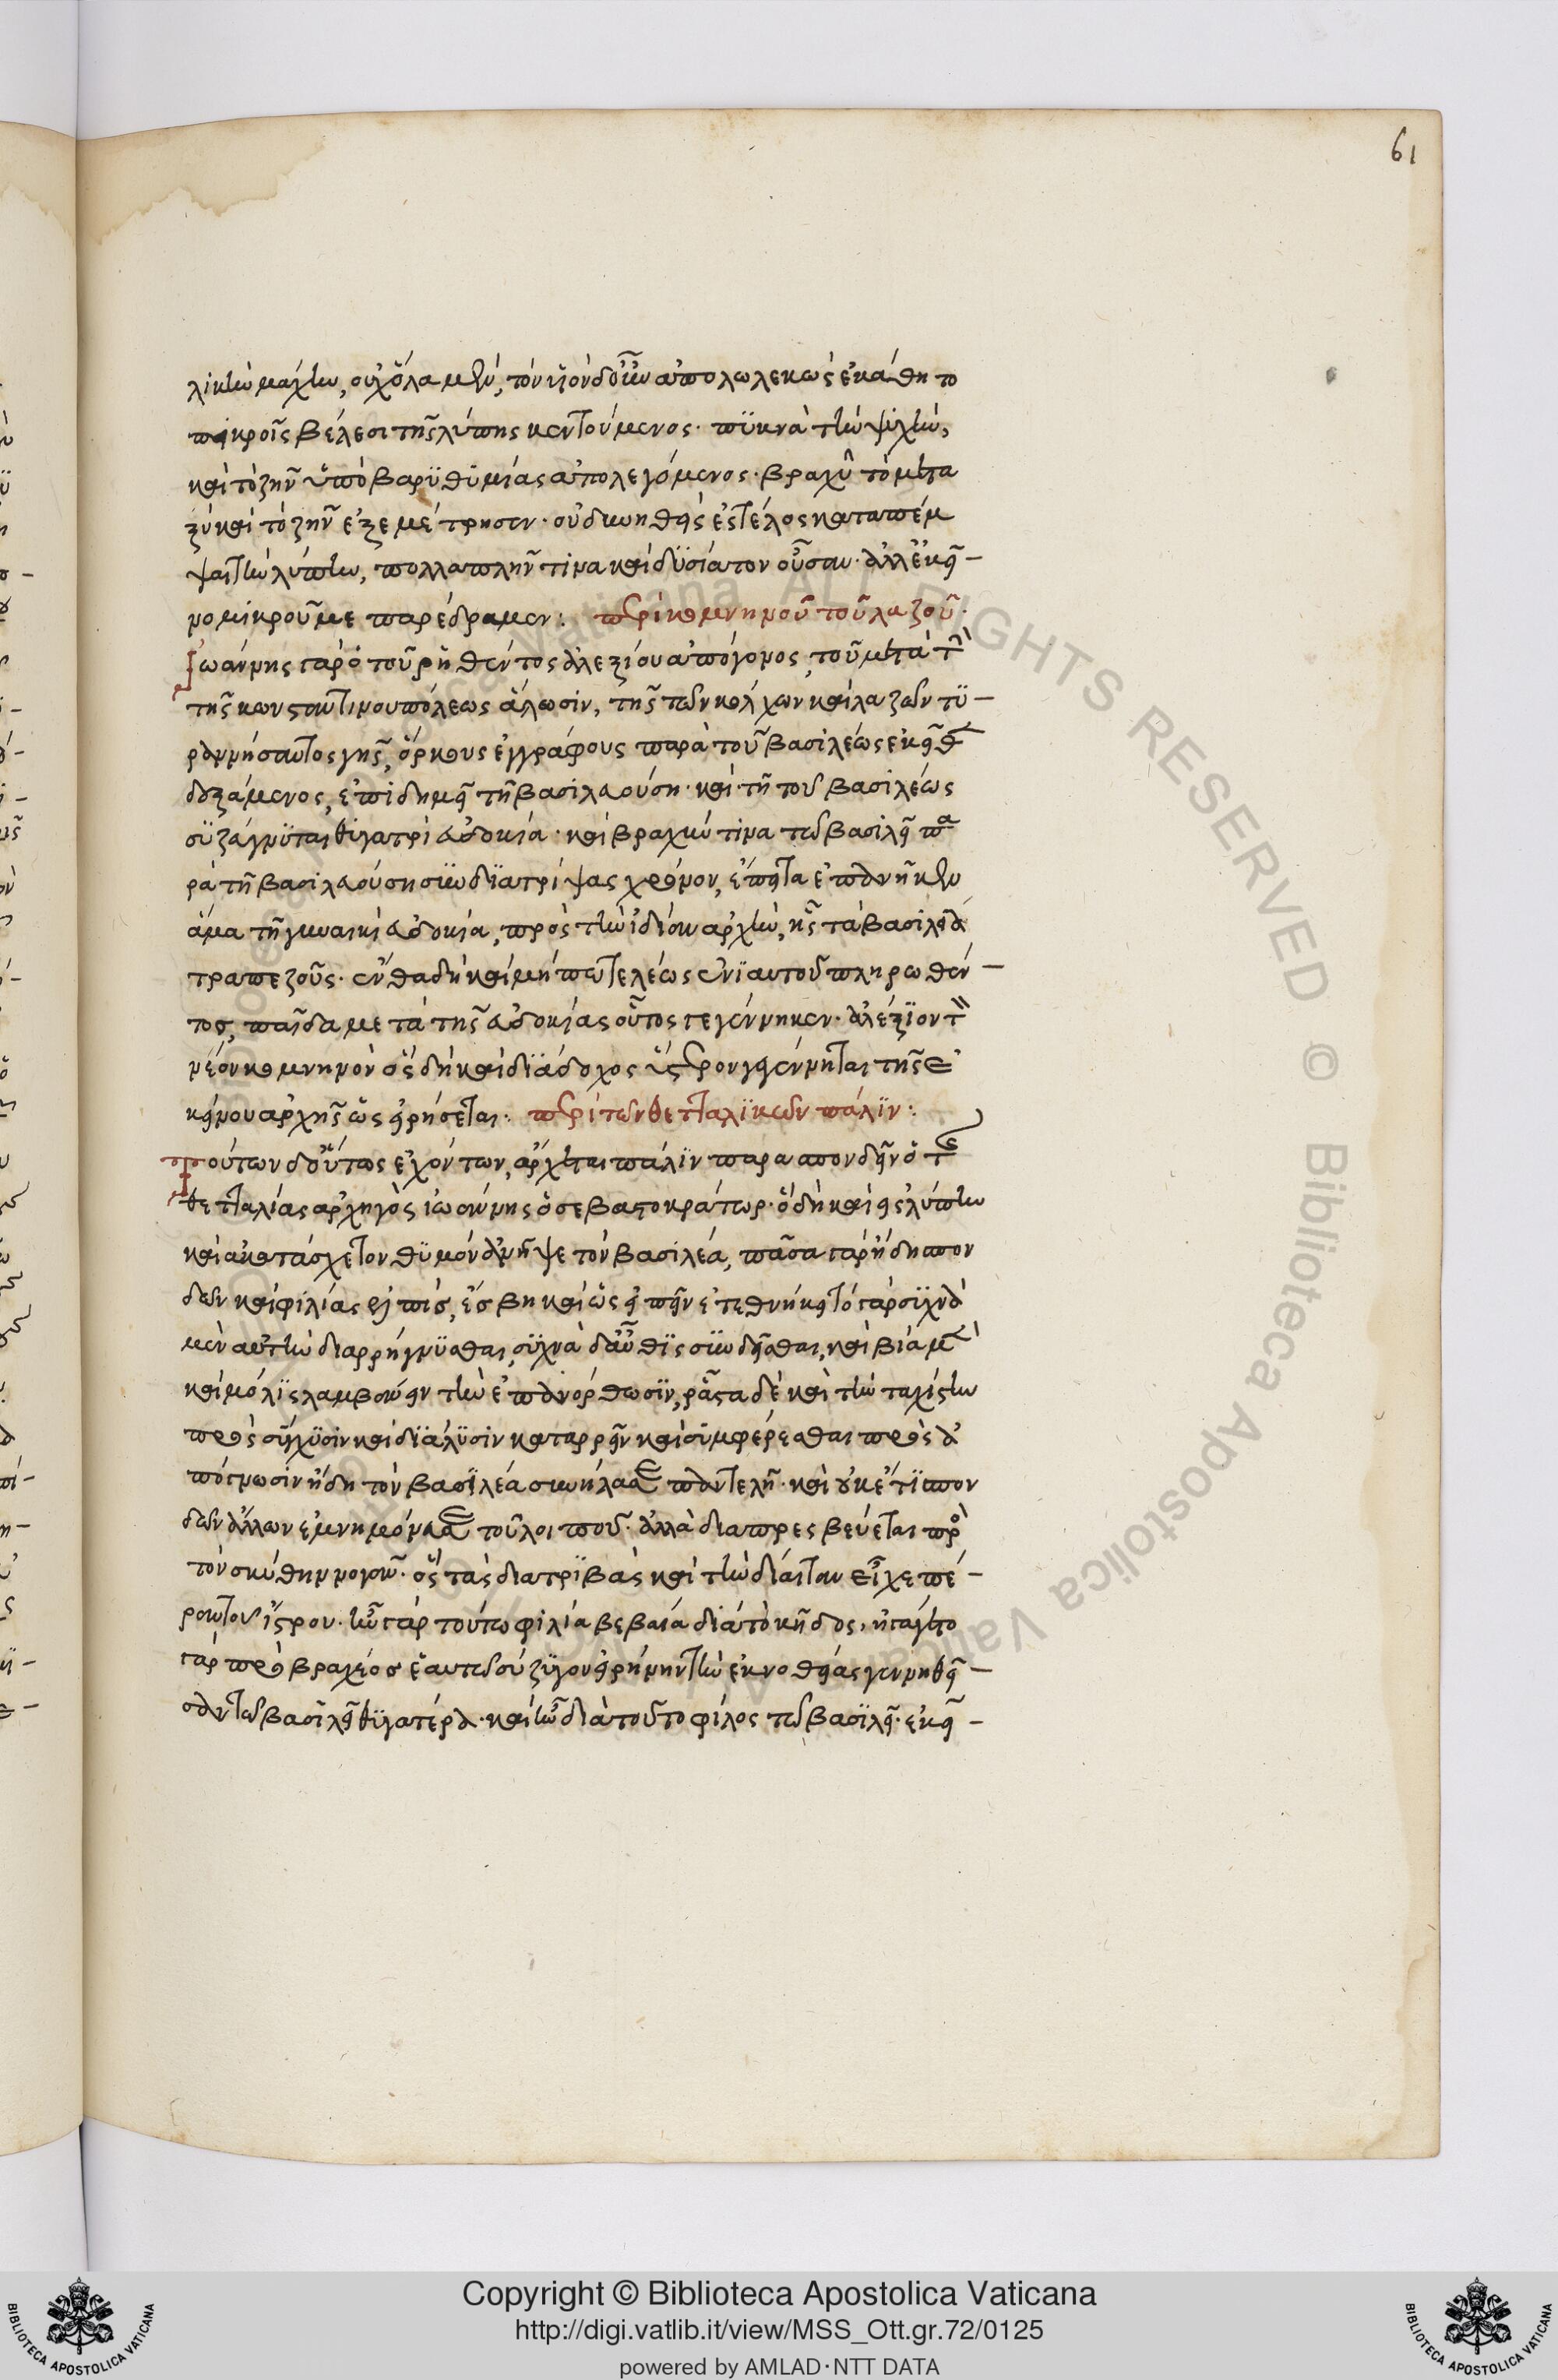 61
λικὴν μάχην, οὐχ ὅλα μὲν, τὸν υἱὸν δ' οὖν ἀπολωλεκὼς ἐκάθητο
πικροῖς βέλεσι τῆς λύπης κεντούμενος· πϋκνὰ τὴν ψυχὴν,
καὶ τὸ ζῆν ὑπὸ βαρϋθϋμίας ἀπολεγόμενος· βραχὺ τὸ μετα
ξὺ καὶ τὸ ζῆν ἐξεμέτρησεν· οὐ δυνηθεὶς ἐς τέλος καταπέμ
ψαι τὴν λύπην, πολλαπλῆν τινα καὶ δϋσίατον οὖσαν· ἀλλ' ἐκεῖ-
νο μικροῦ με παρέδραμεν: περὶ κομνηνοῦ τοῦ λαζοῦ·
Ἰωάννης γὰρ ὁ τοῦ ῥηθέντος ἀλεξίου ἀπόγονος, τοῦ μετὰ τὴν
τῆς κωνσταντινουπόλεως ἅλωσιν, τῆς τῶν κολχων καὶ λαζῶν τϋ-
ραννήσαντος γῆς, ὅρκους ἐγγράφους παρὰ τοῦ βασιλέως ἐκεῖθεν
δεξάμενος, ἐπιδημεῖ τῆ βασιλευούση· καὶ τῆ τοῦ βασιλέως
σϋζεύγνϋται θϋγατρὶ εὐδοκία· καὶ βραχύν τινα τῶ βασιλεῖ πα
ρὰ τῆ βασιλευούση συνδϊατρίψας χρόνον, ἔπειτα ἐπανῆκεν
ἅμα τῆ γυναικὶ εὐδοκία, πρὸς τὴν ἰδίαν ἀρχὴν, ἧς τὰ βασίλεια
τραπεζοῦς· ἔνθα δὴ καὶ μήπω τελέως ἐνϊαυτοῦ πληρωθέν-
τος, παῖδα μετὰ τῆς εὐδοκίας οὗτος γεγέννηκεν· ἀλέξϊον τὸν
νέον κομνηνὸν ὃς δὴ καὶ δϊάδοχος ὕστερον γεγένηται τῆς ἐ
κείνου ἀρχῆς ὡς εἰρήσεται: περὶ τῶν θετταλϊκῶν πάλϊν:
Τούτων δ' οὕτως ἐχόντων, ἄρχεται πάλϊν παρασπονδεῖν ὁ τῆς
θετταλίας ἀρχηγὸς ἰωάννης ὁ σεβαστοκράτωρ· ὃ δὴ καὶ εἰς λύπην
καὶ ἀκατάσχετον θϋμὸν ἀνῆψε τὸν βασιλέα, πᾶσα γὰρ ἤδη σπον
δῶν καὶ φιλίας ἐλπὶς, ἔσβη καὶ ὡς εἰπεῖν ἐτεθνήκει τὸ γὰρ σϋχνὰ
μὲν αὐτὴν διαρρήγνϋσθαι, σϋχνὰ δ' αὖθϊς συνδεῖσθαι, καὶ βία μὲν
καὶ μόλϊς λαμβάνειν τὴν ἐπανόρθωσϊν, ῥᾶστα δὲ καὶ τὴν ταχίστην
πρὸς σύγχϋσϊν καὶ δϊάλϋσϊν καταρρεῖν καὶ συμφέρεσθαι πρὸς ἀ
πόγνωσϊν ἤδη τὸν βασϊλέα συνήλασε παντελῆ· καὶ οὐκέτϊ σπον
δῶν ἄλλων ἐμνημόνευσε τοῦ λοιποῦ· ἀλλὰ διαπρεσβεύεται πρὸς
τὸν σκύθην νογᾶν· ὃς τὰς διατρϊβὰς καὶ τὴν δίαιταν εἶχε πέ-
ραν τοῦ ἴστρου· ἦν γὰρ τούτω φιλία βεβαία διὰ τὸ κῆδος, ἠγάγετο
γὰρ πρὸ βραχέος ἑαυτῶ σύζϋγον εἰρήνην τὴν ἐκ νοθείας γεννηθεῖ-
σαν τῶ βασϊλεῖ θϋγατέρα· καὶ ἦν διὰ τοῦτο φίλος τῶ βασϊλεῖ· ἐκεῖ-
Copyright © Biblioteca Apostolica Vaticana
http://digi.vatlib.it/view/MSS_Ott.gr.72/0125
powered by AMLAD·NTT DATA